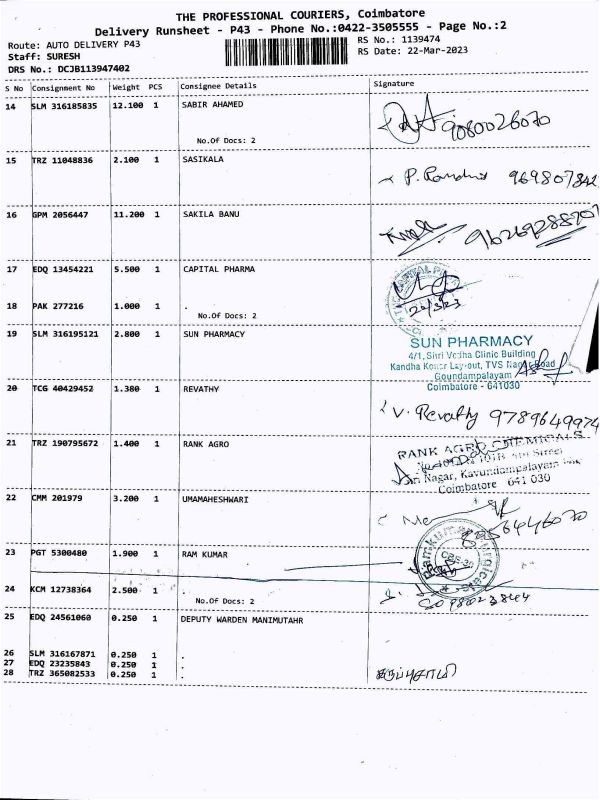 THE PROFESSIONAL COURIERS, Coimbatore
Delivery Runsheet - P43 - Phone No.:0422-3505555 - Page No.:2
Route: AUTO DELIVERY P43
RS No.: 1139474
Staff: SURESH
RS Date: 22-Mar-2023
DRS No.: DCJB113947402
S No Consignment No Weight PCS Consignee Details Signature
14 SLM 316185835 12.100 1 SABIR AHAMED
9080026070
No.Of Docs: 2
15 TRZ 11048836 2.100 1 SASIKALA
969807842
16 GPM 2056447 11.200 1 SAKILA BANU
9626928870
17 EDQ 13454221 5.500 1 CAPITAL PHARMA
18 PAK 277216 1.000 1 .
No.Of Docs: 2
19 SLM 316195121 2.800 1 SUN PHARMACY
SUN PHARMACY
4/1, Shri Vedha Clinic Building
Kandha Konar Lay-out, TVS Nagar Road
Goundampalayam
Coimbatore - 641030
20 TCG 40429452 1.380 1 REVATHY
V. Revathy 9789649974
21 TRZ 190795672 1.400 1 RANK AGRO
RANK AGRO CHEMICALS
Nagar, Kavundampalayam
Coimbatore 641 030
22 CMM 201979 3.200 1 UMAMAHESHWARI
23 PGT 5300480 1.900 1 RAM KUMAR
24 KCM 12738364 2.500 1 .
No.Of Docs: 2
25 EDQ 24561060 0.250 1 DEPUTY WARDEN MANIMUTAHR
26 SLM 316167871 0.250 1 .
27 EDQ 23235843 0.250 1 .
28 TRZ 365082533 0.250 1 .